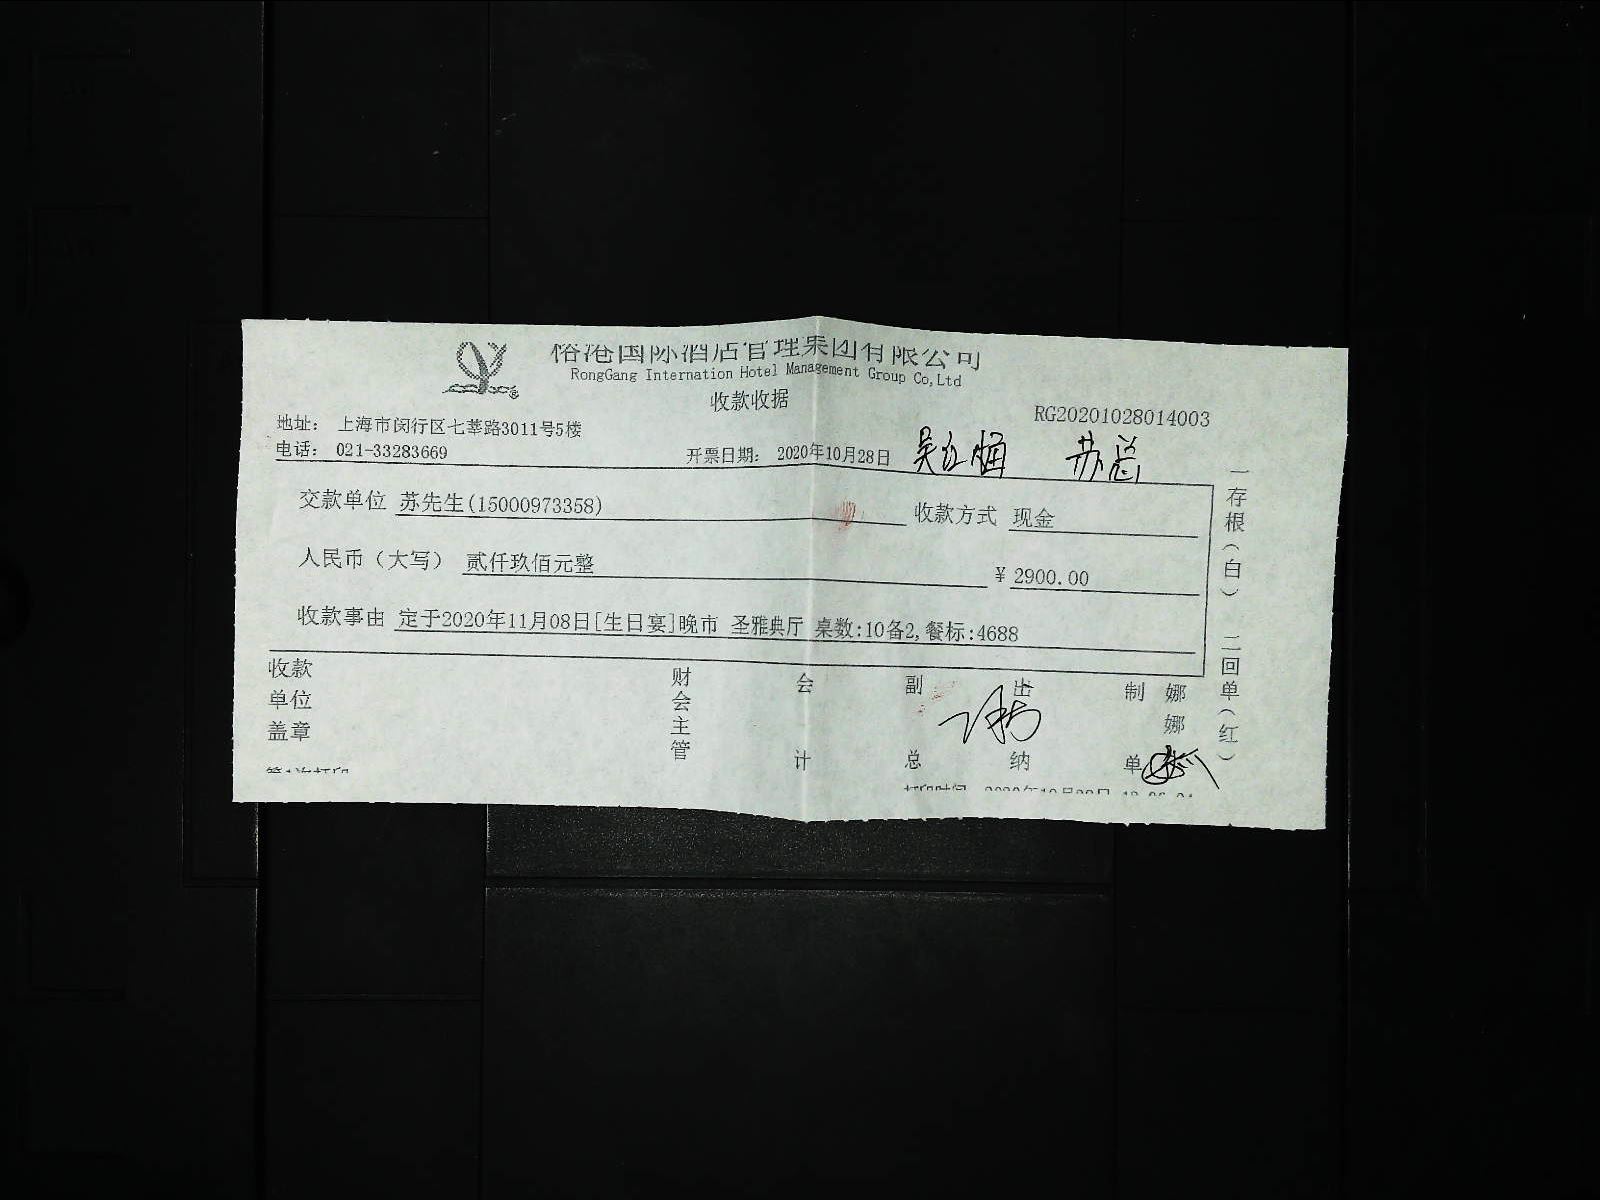 国际酒店管理集团有限公司
RongGang Internation Hotel Management Group Co,Ltd
收款收据
RG20201028014003
地址： 上海市闵行区七莘路3011号5楼
电话： 021-33283669
开票日期： 2020年10月28日
苏总
交款单位 苏先生(15000973358)
收款方式 现金
人民币（大写） 贰仟玖佰元整
￥ 2900.00
收款事由 定于2020年11月08日[生日宴]晚市 圣雅典厅 桌数:10备2,餐标:4688
一存根（白） 二回单（红）
收款单位盖章
财会主管
会计
副总
出纳
制单
娜娜